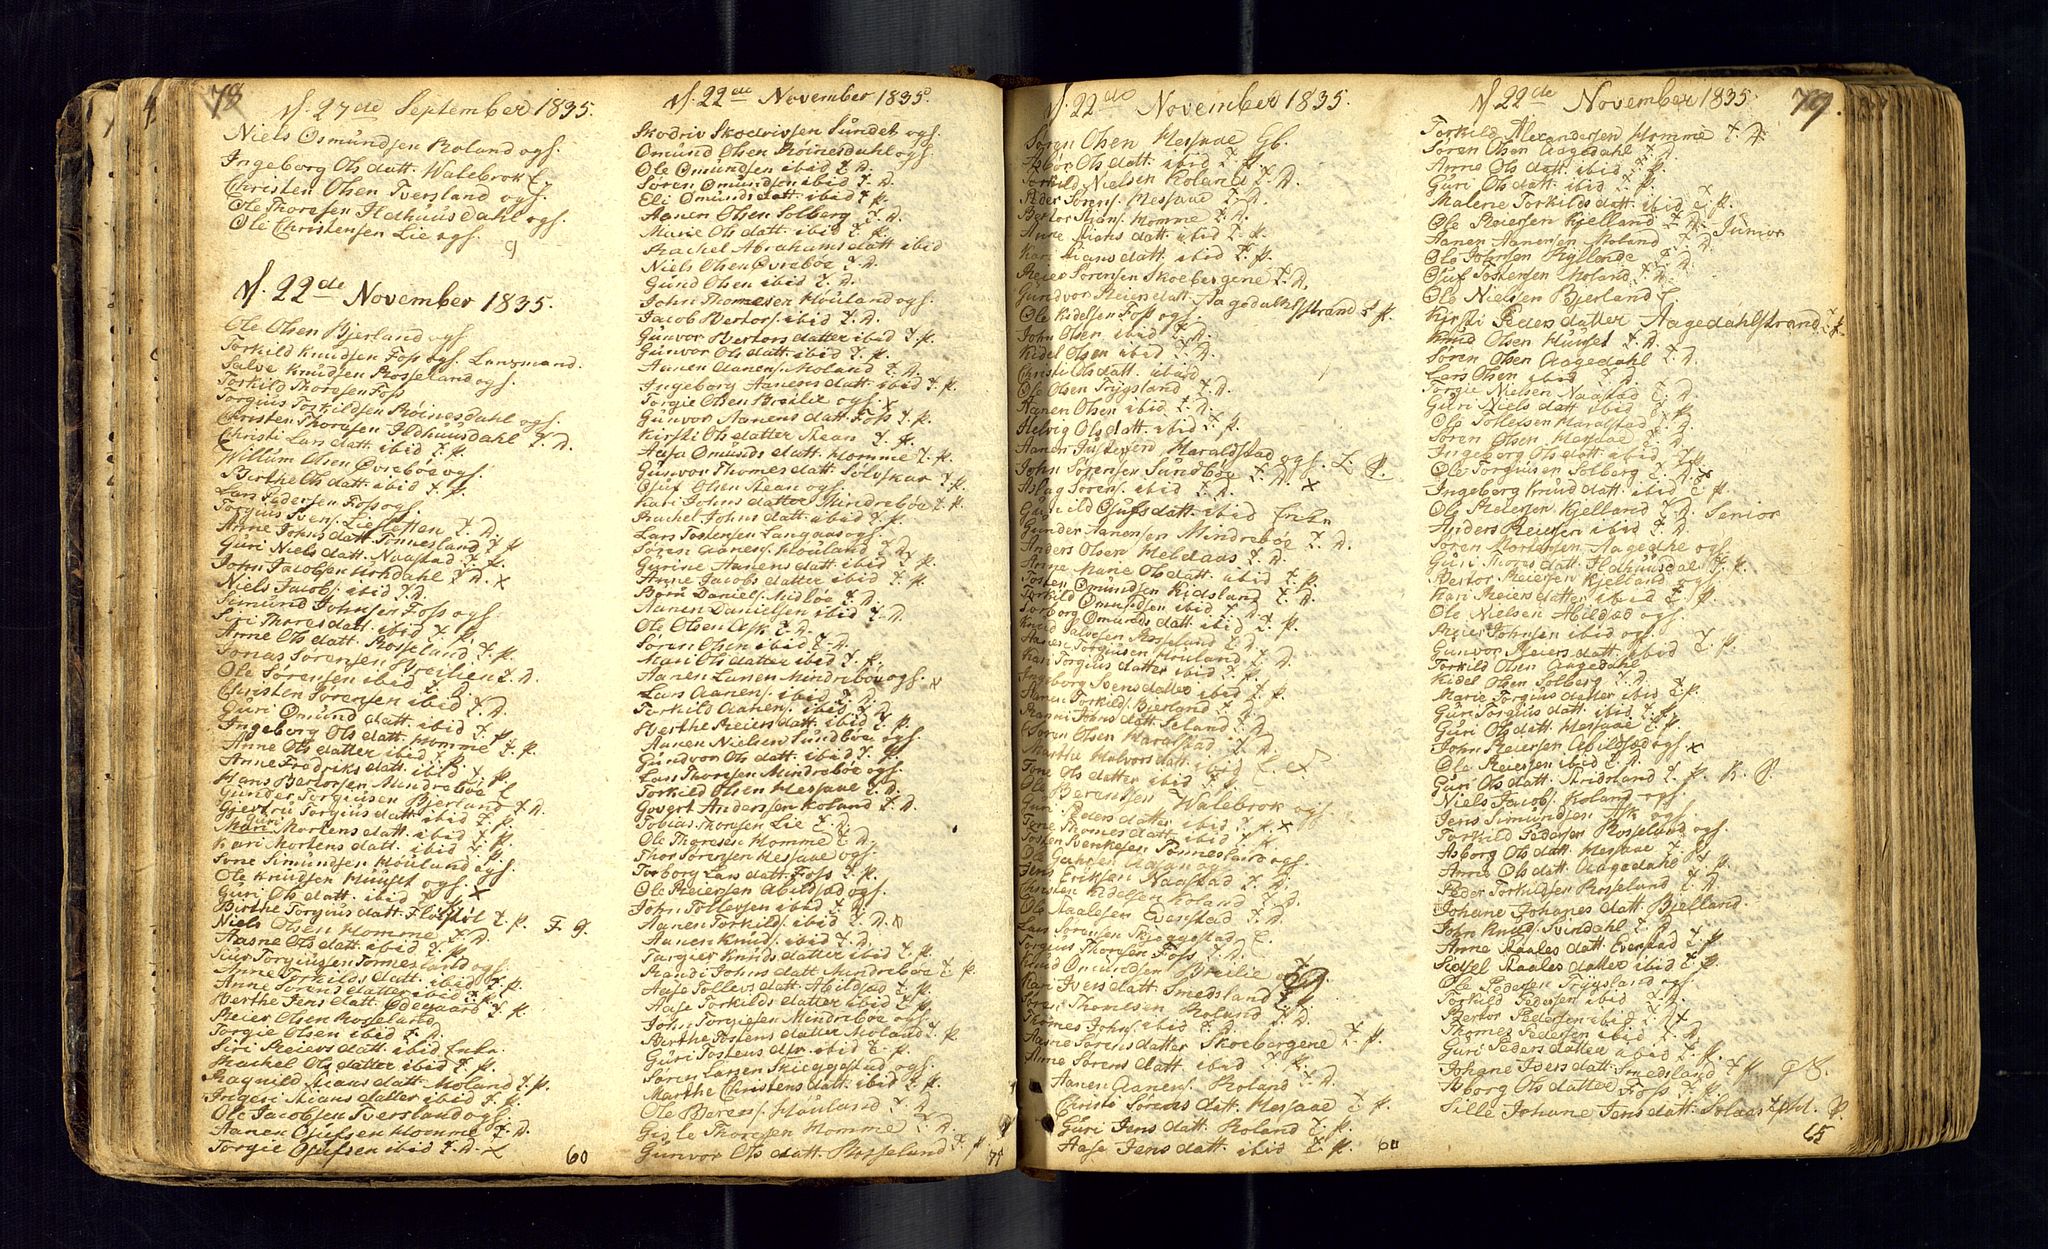 78
d. 27de September 1835.
Niels Osmundsen Roland ogs.
Ingeborg Olsdatt. Walebrok E
Christen Olsen Tversland ogs.
Ole Thoresen Ildhuusdahl ogs.
Ole Christensen Lie ogs.
9
d. 22de November 1835.
Ole Olsen Bjerland ogs
Torkild Knudsen Foss ogs. Lensmand.
Salve Knudsen Rosseland ogs
Torkild Thoresen Foss
Torgius Torkildsen Röinesdahl ogs.
Christen Thoresen Ildhuusdahl T. D.
Christi Lars datt. ibid T. P.
Willum Olsen Øvrebøe ogs.
Berthe Ols datt. ibid T. P.
Lars Pedersen Foss ogs.
Torgius Svens. Liesletten T. D.
Anne Johns datt. Tonnesland T. P
Guri Niels datt. Naastad T. P.
John Jacobsen Urkdahl T. D. x
Niels Jacobs. ibid T. D.
Simund Johnsen Foss ogs
Siri Thores datt. ibid T. P.
Anne Ols datt. Rosseland T. P.
Jonas Sørensen Breilien T. D.
Ole Sørensen ibid T. D.
Christen Sørensen ibid T. D.
Guri Omund datt. ibid T. P.
Ingeborg Ols datt. Homme T. P.
Anne Ols datter ibid T. P.
Anne Fredriks datt. ibid T. P.
Hans Bertorsen Mindrebøe E
Gunder Torgiusen Bjerland T. D.
Giertru Torgius datt. ibid T. P.
Guri
Mari Mortens datt. ibid T. P.
Kari Mortens datt. ibid T. P.
Tone Simundsen Houland ogs.
Ole Knudsen Huuset ogs.
Guri Ols datt. ibid T. P. x
Birthe Torgius datt. Flottil T. P. F. G.
Niels Olsen Homme T. D.
Aasne Ols datt. ibid T. P.
Siur Torgiusen Tonnesland ogs
Anne Torkilds datt. ibid T. P.
Anne Sørens datter ibid T. P.
Berthe Jens datt. Ødegaard T. P.
Reier Olsen Rosseland
Torgie Olsen ibid T. D.
Siri Reiers datt. ibid Enke.
Rachel Ols datter ibid T. P.
Ragnild Stians datt. Moland T. P.
Ingeri Stians datter ibid T. P.
Ole Jacobsen Tversland ogs.
Aanen Olufsen Homme T. D.
Torgie Olufsen ibid T. D. x
60
d. 22de November 1835.
Skodriv Skodrivsen Sundet ogs.
Omund Olsen Röinesdahl ogs
Ole Omundsen ibid T. D.
Søren Omundsen ibid T. D.
Eli Omunds datt. ibid T. P.
Aanen Olsen Solberg T. D.
Marie Ols datt. ibid T. P.
Rachel Abrahams datt. ibid
Niels Olsen Øvrebøe T. D.
Gund Olsen ibid T. D.
John Thomesen Houland ogs.
Jacob Bertors. ibid T. D.
Gunvor Bertors datter ibid T. P.
Gunvor Ols datt. ibid T. P.
Aanen Aanens. Moland T. D.
Ingeborg Aanens datt. ibid T. P.
Torgie Olsen Breilie ogs x
Gunvor Aanens datt. Foss T. P.
Kirsti Ols datter Stean T. P.
Aase Omunds datt. Homme T. P.
Gunvor Thomes datt. Sølvskar T. P.
Oluf Olsen Stean ogs.
Kari Johns datter Mindrebøe T. P.
Rachel Johns datt. ibid T. P.
Lars Tostensen Langaas ogs.
Søren Aanens. Houland T. D.
Gurine Aanens datt. ibid T. P.
Anne Jacobs datter ibid T. P.
Berü Daniels. Midbøe T. D.
Aanen Danielsen ibid T. D.
Ole Olsen Ask T. D.
Søren Olsen ibid T. D.
Mari Ols datter ibid T. P.
Aanen Larsen Mindrebøe ogs. x
Lars Aanens. ibid T. D.
Torkild Aanens. ibid T. D.
Berthe Reiers datt. ibid T. P.
Aanen Nielsen Sundbøe ogs.
Gundvor Ols datt. ibid T. P.
Lars Thoresen Mindrebøe ogs.
Torkild Olsen Messaae T. D.
Govert Andersen Roland T. D.
Tobias Thorsen Lie T. D.
Ole Thoresen Homme T. D.
Thor Sørensen Hessaae ogs.
Torborg Lars datt. Foss T. P.
Ole Reiersen Abildsæd ogs.
John Tollefsen ibid T. D.
Aanen Torkilds. ibid T. D. x
Aanen Knuds. ibid T. D.
Targier Knuds datter ibid T. P.
Randi Johns datt. Mindrebøe T. P.
Aase Tollevs datt. Abildsæd T. P.
Aase Torkilds datter ibid T. P.
John Torgiesen Mindrebøe ogs.
Berthe Tostens datter Moland T. P.
Guri Tostens dtr. ibid T. P.
Søren Larsen Skieggestad ogs.
Marthe Christens datt. ibid T. P.
Ole Berens. Houland T. D.
Gisle Thoressen Homme T. D.
Gunvor Ols datt. Rosseland T. P.
d. 22de November 1835.
Søren Olsen Messaae Gb.
Asbør Ols datt. ibid T. P.
Torkild Nielsen Roland T. D.
Peder Sørens. Messaae T. D.
Bertor Stians. Homme T. D.
Anne Stians datt. ibid T. P.
Kari Stians datt. ibid T. P.
Reier Sørensen Skoebergene T. D.
Gundvor Reiers datt. Aagedahlsstrand T. P.
Ole Kidelsen Foss ogs.
John Olsen ibid T. D.
Kidel Olsen ibid T. D.
Christi Ols datt. ibid
Ole Olsen Trygsland T. D.
Aanen Olsen ibid T. D.
Helvig Ols datt. ibid T. P.
Aanen Justsen Haraldstad ogs. L. P.
John Sørensen Sundbøe T. D. x
Aslag Sørens. ibid T. D.
Gunild Olufs datt. ibid Enke
Gunder Aanensen Mindrebøe T. D.
Anders Olsen Heldaas T. D.
Anne Mane Ols datt. ibid T. P.
Tosten Omundsen Kidsland T. D.
Torkild Omundsen ibid T. D.
Torborg Omunds datt. ibid T. P.
Knud Salvesen Rosseland T. D.
Aanen Torgiusen Houland T. D.
Kari Torgius datter ibid T. P.
Ingeborg Svens datter ibid T. P.
Hans Torkilds. Bjerland T. D.
Ranni Jens datt. Seland T. P.
Søren Olsen Haraldstad T. D.
Marthe Halvors datt. ibid E. F
Tone Ols datter ibid T. P.
Ole Berentsen Walebrok ogs
Guri Peders datter ibid T. P. x
Tone Thomes datt. ibid T. P.
Tosten Svenkesen Tonnesland ogs.
Jens Eriksen Naastad T. D.
Christen Kidelsen Roland T. D.
Ole Staalesen Evenstad T. D.
Lars Sørensen Skjeggestad E.
Torgius Thorsen Foss T. D.
Knud Omundsen Breilie ogs
Kari Ivers datt. Smedsland T. P.
Søren Thomesen Roland T. D.
Thomes Johns. ibid T. D.
Aasne Sørens datter Skoebergene T. P.
Anne Sørens datt. ibid T. P.
Aanen Aanens. Roland T. D.
Christi Sørens datt. Hessaae T. P.
Guri Jens datt. Roland T. P.
Aase Jens datt. ibid T. P.
60
79.
d. 22de November 1835.
Torkild Alexandersen Homme T. D.
Søren Olsen Aagedahl T. D.
Anne Ols datt. ibid T. P.
Guri Ols datt. ibid T. P.
Malene Torkilds datt. ibid T. P.
Ole Reiersen Kjelland T. D. Junior
Aanen Aanensen Moland T. D.
Ole Johnsen Kyllende T. D.
Oluf Tostensen Moland T. D.
Ole Nielsen Bjerland E
Kirsti Peders datter Aagedahlstrand T. P.
Knud Olsen Huuset T. D.
Søren Olsen Aagedahl T. D.
Lars Olsen ibid T. D.
Torgie Nielsen Naastad T. D.
Guri Niels datt. ibid T. P.
Ole Tollefsen Haralstad T. D.
Søren Olsen Messaae T. D.
Ingeborg Ols datt. ibid T. P.
Ole Torgiusen Solberg T. D. x
Ingeborg Knud datt. ibid T. P.
Ole Reiersen Kjelland T. D. Senior
Anders Reiersen ibid T. D.
Søren Mortensen Aagedhl ogs.
Guri Thores datt. Ildhuusdal T. P.
Bertor Reiersen Kjelland ogs.
Kari Reiers datter ibid T. P.
Ole Nielsen Abildsæd ogs.
Reier Johnsen ibid ogs.
Gunvor Reiers datt. ibid T. P.
Torkild Olsen Aagedahl
Kidel Olsen Solberg T. D.
Marie Torgius datter ibid T. P.
Guri Torgius datt. ibid T. P.
Guri Ols datt. Messaae T. P.
John Reiersen Abildsæd ogs x
Ole Reiesen ibid T. D.
Guri Ols datt. Stridsland T. P. K. P.
Niels Jacobs. Roland ogs
Jens Simundsen Ask ogs
Torkild Pedersen Rosseland ogs.
Asborg Ols datt. Hessaae T. P.
Anne Ols datt. Aagedahl T. P.
Peder Torkildsen Rosseland T. D.
Johane Johanes datt. Bjelland
John Knuds. Svindahl T. D.
Anne Staales datt. Evenstad T. P.
Sidsel Staales datter ibid T. P.
Ole Pedersen Trygsland ogs.
Torkild Pedersen ibid T. D.
Bertor Pedersen ibid T. D. x
Thomes Pedersen ibid T. D.
Guri Peders datter ibid T. P.
Johane Ivers datt. Smedsland T. P.
Asborg Ols datter Foss T. P.
Sille Johane Jens datt.
65